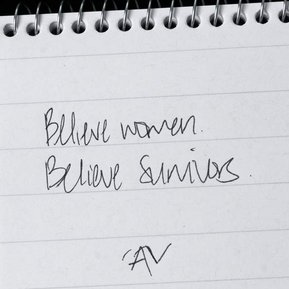 Believe women.
Believe Survivors.
AV